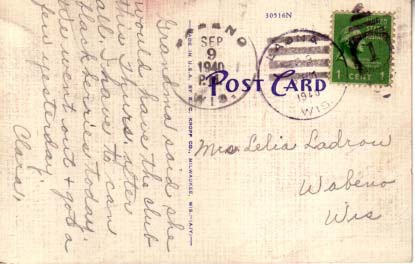 Grandma said she
would have the club
this Thurs. after
all. I have to can
blackberries today.
We went out & got a
few yesterday.
Clara,
MADE IN U.S.A. BY E. C. KROPP CO., MILWAUKEE, WIS.
30516N
POST CARD
SEP
9
1940
WIS.
WIS.
UNITED STATES
1 CENT 1
Lelia Ladrow
Wabeno
Wis